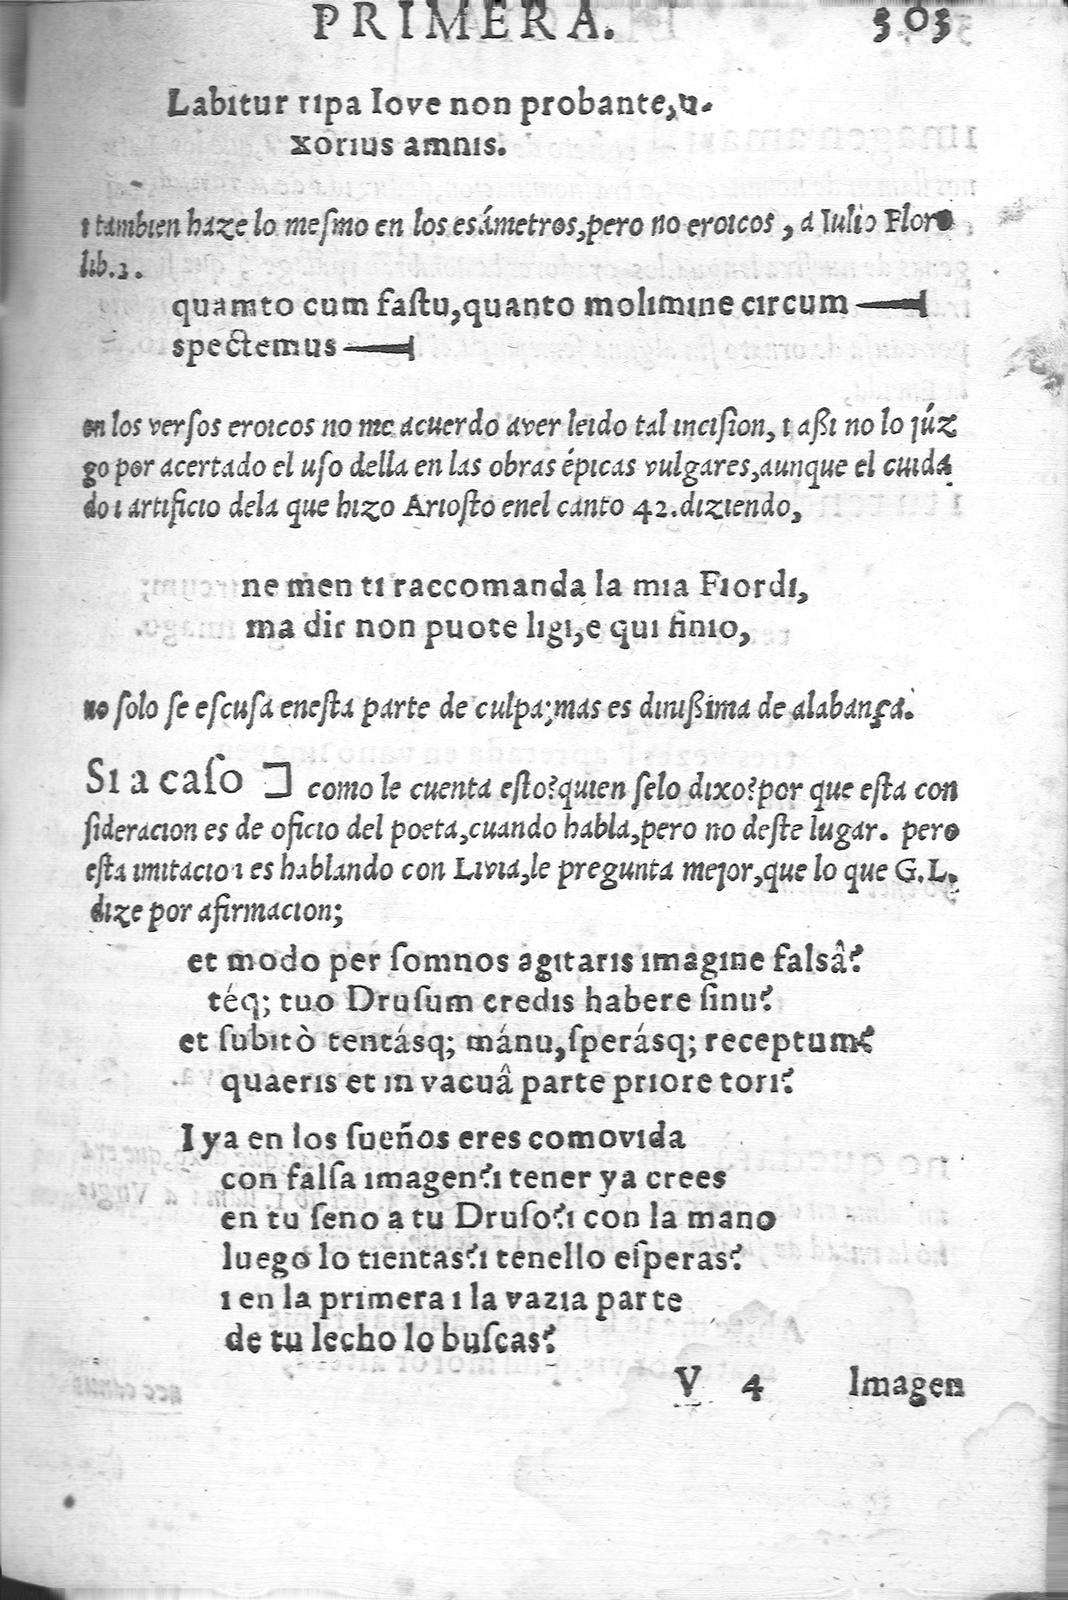 PRIMERA. 303
Labitur ripa Iove non probante, u-
xorius amnis.
ı tambien haze lo meſmo en los esámetros, pero no eroıcos, a Iulio Floro
lib.2.
quamto cum faſtu, quanto molımıne cırcum
spectemus
en los verſos eroıcos no me acuerdo aver leıdo tal ıncıſıon, ı aßı no lo júz
go por acertado el uſo della en las obras épıcas vulgares, aunque el cuıda
do ı artıfıcıo dela que hızo Arıoſto enel canto 42. dızıendo,
ne men tı raccomanda la mıa Fıordı,
ma dır non puote lıgı, e quı fınıo,
no ſolo ſe eſcuſa eneſta parte de culpa; mas es dınıßıma de alabança.
Sı a caſo ⊐ como le cuenta eſto? quıen ſelo dıxo? por que eſta con
ſıderacıon es de ofıcıo del poeta, cuando habla, pero no deſte lugar. pero
eſta ımıtacıoı es hablando con Lıvıa, le pregunta meȷor, que lo que G.L.
dıze por afırmacıon;
et modo per ſomnos agıtarıs ımagıne falsâ?
téq; tuo Druſum credıs habere ſınu?
et ſubıtò tentásq; mánu, ſperásq; receptum?
quaerıs et ın vacuâ parte prıore torı?
I ya en los ſueños eres comovıda
con falſa ımagen? ı tener ya crees
en tu ſeno a tu Druſo? ı con la mano
luego lo tıentas? ı tenello eſperas?
ı en la prımera ı la vazıa parte
de tu lecho lo buſcas?
V 4 Imagen